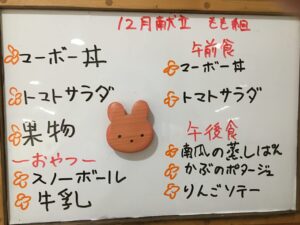 12月献立 もも組
マーボー丼
トマトサラダ
果物
ーおやつー
スノーボール
牛乳
午前食
マーボー丼
トマトサラダ
午後食
南瓜の蒸しぱん
かぶのポタージュ
りんごソテー